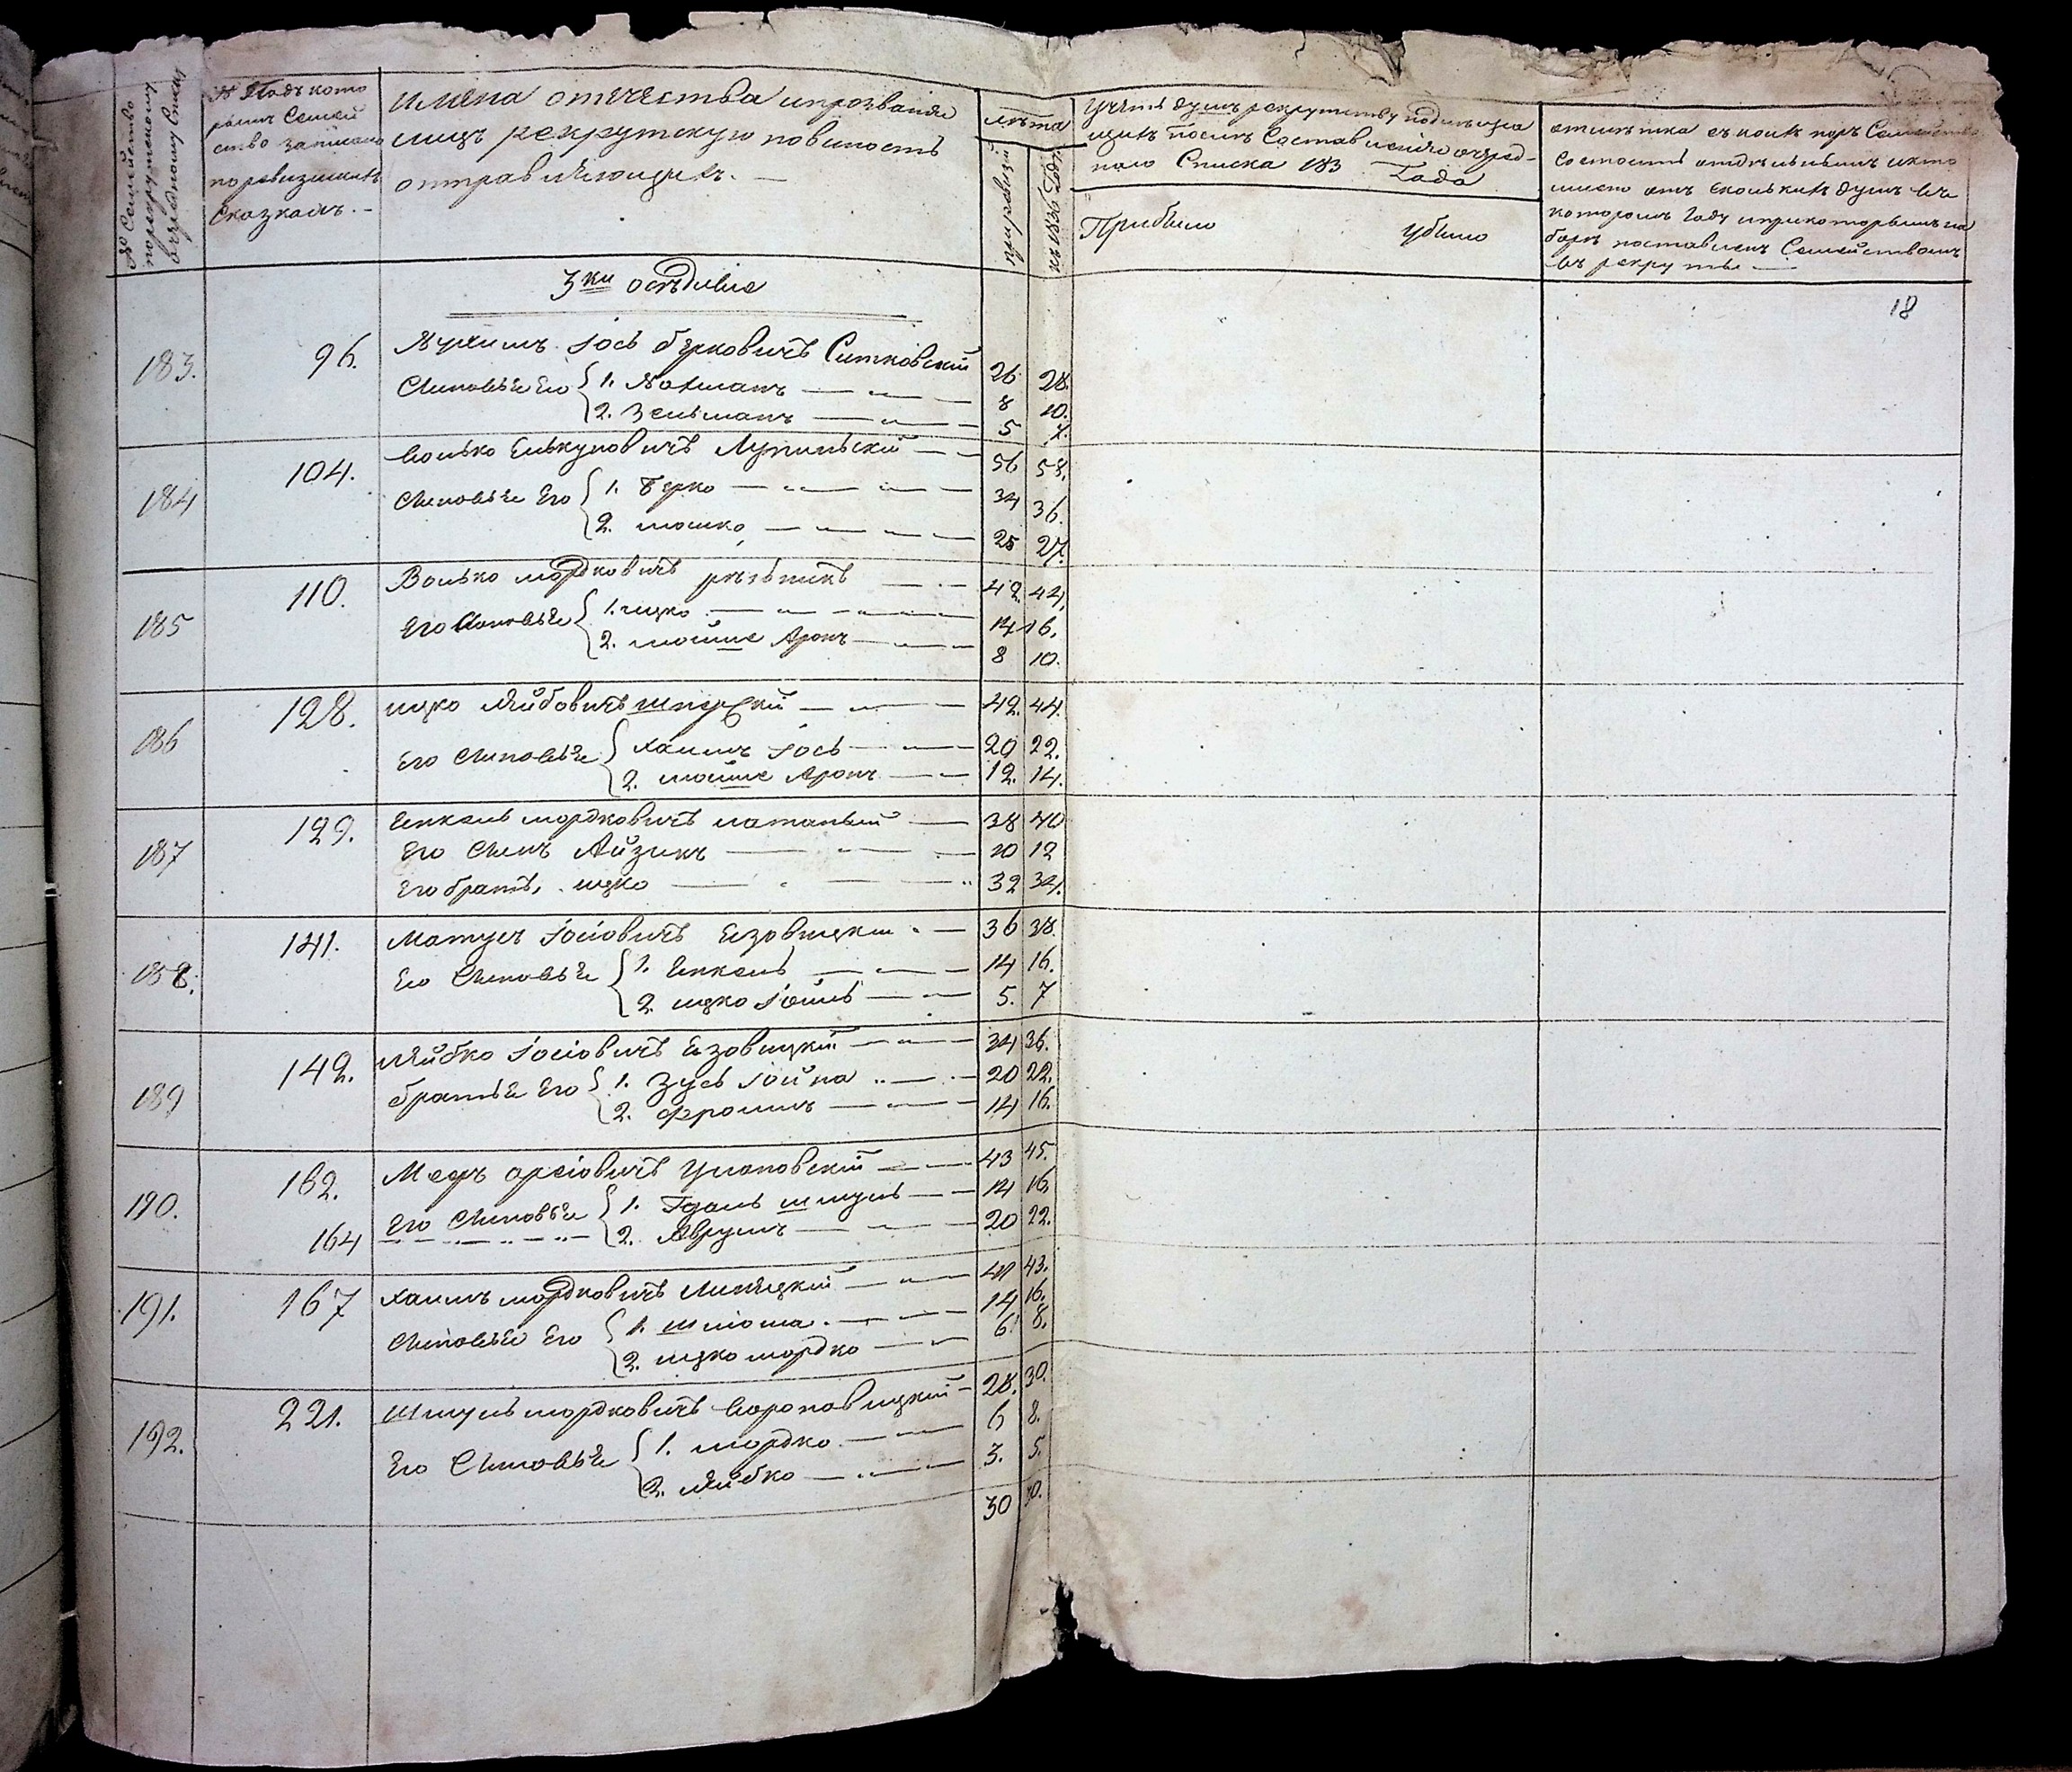 № Семейство
порекрутскому
очередному Списку
№ Подъ кото
рымъ Семей
ство записано
поревизским
сказкамъ.-
имена отчества ипрозвания
лицъ рекрутскую повиность
отправляющихъ. —
лѣта
приревизіи
къ 1836 году
Учетъ душъ рекрутству подлежа
щихъ послѣ Составления очеред-
наго Списка 183 Года
Прибыло
убыло
отмѣтка съ коихъ поръ Семейство
Состоитъ отдѣльнымъ икто
имено отъ сколькихъ душъ въ
которомъ году иприкоторымъ на
борѣ поставленъ Семействомъ
въ рекруты —
3хъ
18
183.
96.
Нухимъ Іось берковичъ Ситковский
26
28.
Сыновья Его
1. Нахманъ
8
10.
2. Зельманъ
5
7.
184
104.
Волько Елькуновичъ
56
58.
Сыновья Его
1. Берко
34
36.
2. мошко
25
27.
185
110.
Волько мордковичъ рѣзникъ
42.
44.
Его Сыновья
1. ицко
14
16.
2. мойше Аронъ
8
10.
186
128.
ицко лейбовичъ
42.
44.
Его Сыновья
хаимъ Іось
20
22.
2. мойше Аронъ
12.
14.
187
129.
Енкель мордковичъ
38
40
Его Сынъ Айзикъ
10
12
Его братъ, ицко
32
34.
188.
141.
Матусъ Іосіовичъ Езовицкий
36
38.
Его Сыновья
1. Енкель
14
16.
2. ицко Іойль
5.
7
189
142.
лейбко Іосіовичъ Езовицкий
34
36.
братья Его
1. Зусь Іойна
20
22.
2. Фроимъ
14
16.
190.
162.
Меэръ
43
45.
Его Сыновья
1. Гдаль шмуль
14
16
164
2. Аврумъ
20
22.
191.
167
хаимъ мордковичъ Липецкий
41
43.
Сыновья Его
1. шлиома
14
16.
2. ицко мордко
6
8.
192.
221.
Шмуль мордковичъ
28.
30.
Его Сыновья
1. мордко
6
8.
2. лейбко
3.
5.
30
30.